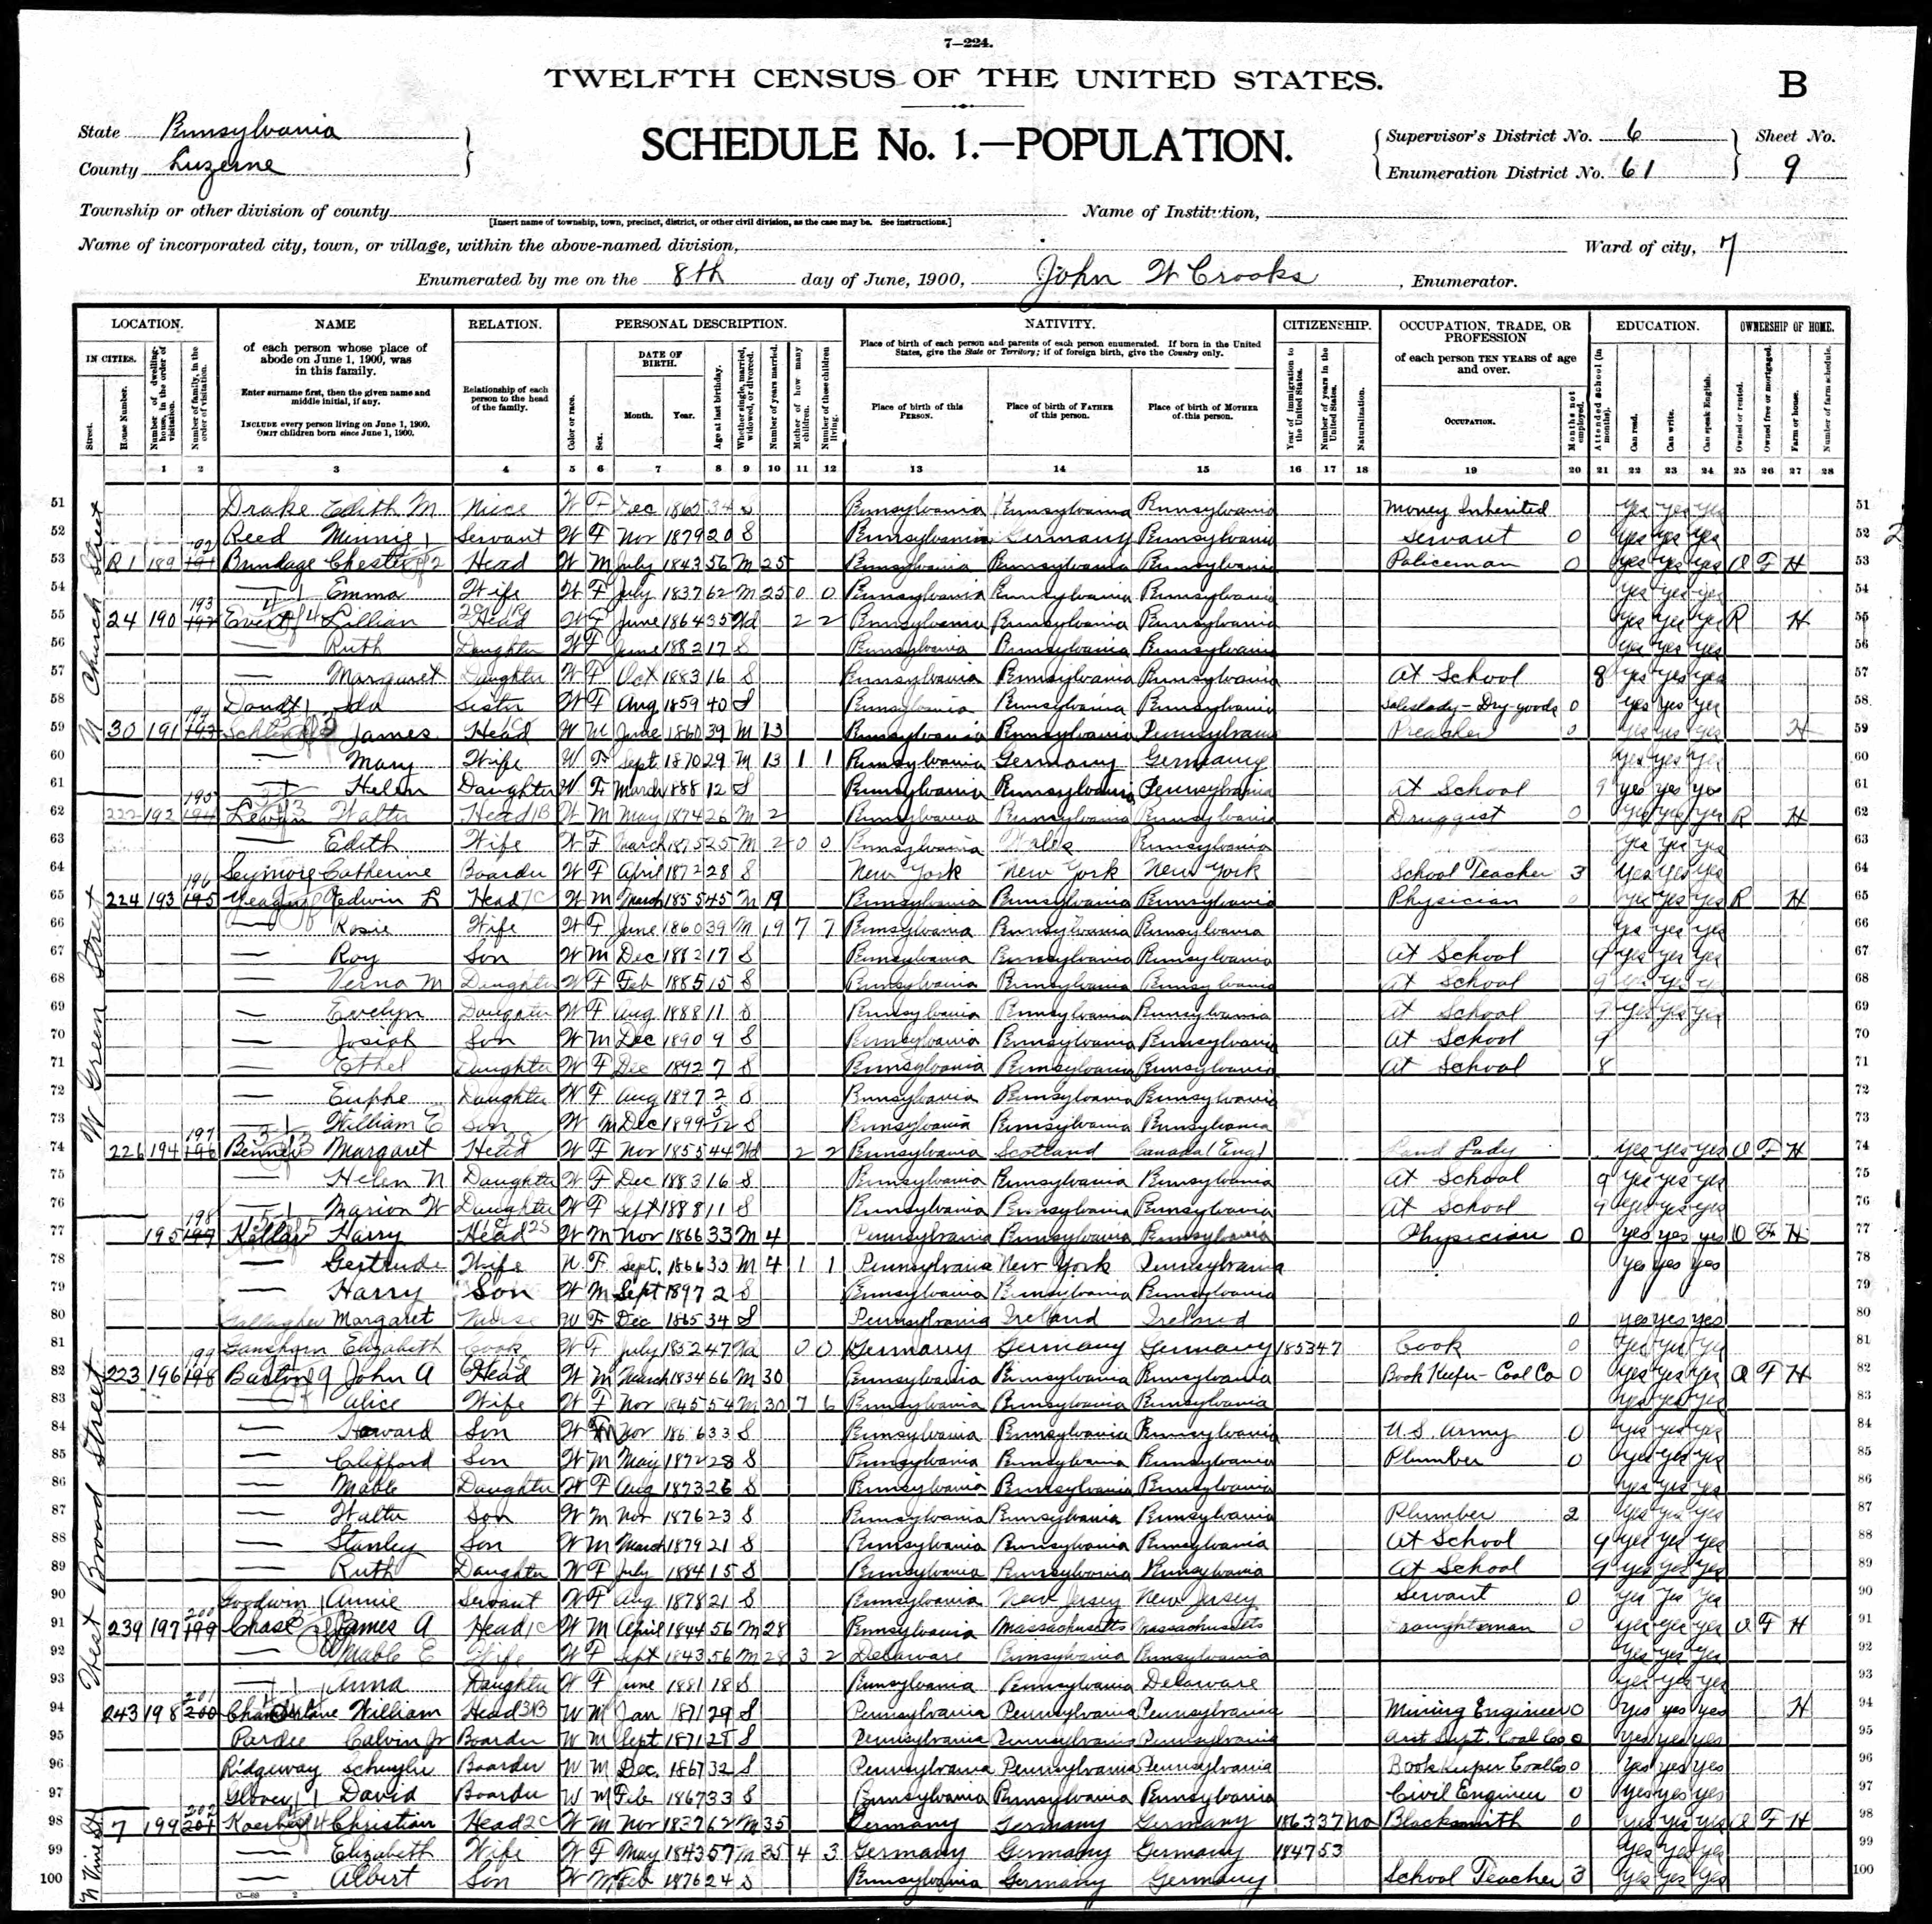 7—224.
TWELFTH CENSUS OF THE UNITED STATES.
B
State Pennsylvania
County Luzerne
SCHEDULE No. 1.—POPULATION.
Supervisor's District No. 6
Enumeration District No. 61
Sheet No.
9
Township or other division of county
[Insert name of township, town, precinct, district, or other civil division, as the case may be. See instructions.]
Name of Institution,
Name of incorporated city, town, or village, within the above-named division,
Ward of city, 7
Enumerated by me on the 8th day of June, 1900, John W Crooks, Enumerator.
LOCATION. NAME RELATION. PERSONAL DESCRIPTION. NATIVITY. CITIZENSHIP. OCCUPATION, TRADE, OR PROFESSION EDUCATION. OWNERSHIP OF HOME.
IN CITIES. Street. House Number. Number of dwelling-house, in the order of visitation. Number of family, in the order of visitation.
of each person whose place of abode on June 1, 1900, was in this family.
Enter surname first, then the given name and middle initial, if any.
INCLUDE every person living on June 1, 1900. OMIT children born since June 1, 1900.
Relationship of each person to the head of the family.
Color or race. Sex. DATE OF BIRTH. Month. Year. Age at last birthday. Whether single, married, widowed, or divorced. Number of years married. Mother of how many children. Number of these children living.
Place of birth of each person and parents of each person enumerated. If born in the United States, give the State or Territory; if of foreign birth, give the Country only.
Place of birth of this PERSON. Place of birth of FATHER of this person. Place of birth of MOTHER of this person.
Year of immigration to the United States. Number of years in the United States. Naturalization.
of each person TEN YEARS of age and over.
OCCUPATION. Months not employed.
Attended school (in months). Can read. Can write. Can speak English.
Owned or rented. Owned free or mortgaged. Farm or house. Number of farm schedule.
1 2 3 4 5 6 7 8 9 10 11 12 13 14 15 16 17 18 19 20 21 22 23 24 25 26 27 28
N Church Street
51 Drake Edith M Niece W F Dec 1865 34 S Pennsylvania Pennsylvania Pennsylvania Money Inherited yes yes yes 51
52 Reed Minnie Servant W F Nov 1879 20 S Pennsylvania Germany Pennsylvania Servant 0 yes yes yes 52
53 R1 189 192 Brundage Chester Head W M July 1843 56 M 25 Pennsylvania Pennsylvania Pennsylvania Policeman 0 yes yes yes O F H 53
54 — Emma Wife W F July 1837 62 M 25 0 0 Pennsylvania Pennsylvania Pennsylvania yes yes yes 54
55 24 190 193 Evert Lillian Head W F June 1864 35 Wd 2 2 Pennsylvania Pennsylvania Pennsylvania yes yes yes R H 55
56 — Ruth Daughter W F June 1882 17 S Pennsylvania Pennsylvania Pennsylvania yes yes yes 56
57 — Margaret Daughter W F Oct 1883 16 S Pennsylvania Pennsylvania Pennsylvania At School 8 yes yes yes 57
58 Ida Sister W F Aug 1859 40 S Pennsylvania Pennsylvania Pennsylvania Saleslady - Dry goods 0 yes yes yes 58
59 30 191 194 James Head W M June 1860 39 M 13 Pennsylvania Pennsylvania Pennsylvania Preacher 0 yes yes yes H 59
60 — Mary Wife W F Sept 1870 29 M 13 1 1 Pennsylvania Germany Germany yes yes yes 60
61 — Helen Daughter W F March 1888 12 S Pennsylvania Pennsylvania Pennsylvania At School 9 yes yes yes 61
W Green Street
62 222 192 195 Walter Head W M May 1874 26 M 2 Pennsylvania Pennsylvania Pennsylvania Druggist 0 yes yes yes R H 62
63 — Edith Wife W F March 1875 25 M 2 0 0 Pennsylvania Wales Pennsylvania yes yes yes 63
64 Seymore Catherine Boarder W F April 1872 28 S New York New York New York School Teacher 3 yes yes yes 64
65 224 193 196 Yeager Edwin L Head W M March 1855 45 M 19 Pennsylvania Pennsylvania Pennsylvania Physician 0 yes yes yes R H 65
66 — Rosie Wife W F June 1860 39 M 19 7 7 Pennsylvania Pennsylvania Pennsylvania yes yes yes 66
67 — Roy Son W M Dec 1882 17 S Pennsylvania Pennsylvania Pennsylvania At School 9 yes yes yes 67
68 — Verna M Daughter W F Feb 1885 15 S Pennsylvania Pennsylvania Pennsylvania At School 9 yes yes yes 68
69 — Evelyn Daughter W F Aug 1888 11 S Pennsylvania Pennsylvania Pennsylvania At School 9 yes yes yes 69
70 — Josiah Son W M Dec 1890 9 S Pennsylvania Pennsylvania Pennsylvania At School 9 70
71 — Ethel Daughter W F Dec 1892 7 S Pennsylvania Pennsylvania Pennsylvania At School 8 71
72 — Euphe Daughter W F Aug 1897 2 S Pennsylvania Pennsylvania Pennsylvania 72
73 — William E Son W M Dec 1899 5/12 S Pennsylvania Pennsylvania Pennsylvania 73
74 226 194 197 Benner Margaret Head W F Nov 1855 44 Wd 2 2 Pennsylvania Scotland Canada (Eng) Land Lady yes yes yes O F H 74
75 — Helen N Daughter W F Dec 1883 16 S Pennsylvania Pennsylvania Pennsylvania At School 9 yes yes yes 75
76 — Marion W Daughter W F Sept 1888 11 S Pennsylvania Pennsylvania Pennsylvania At School 9 yes yes yes 76
West Broad Street
77 195 198 Kellar Harry Head W M Nov 1866 33 M 4 Pennsylvania Pennsylvania Pennsylvania Physician 0 yes yes yes O F H 77
78 — Gertrude Wife W F Sept. 1866 33 M 4 1 1 Pennsylvania New York Pennsylvania yes yes yes 78
79 — Harry Son W M Sept 1897 2 S Pennsylvania Pennsylvania Pennsylvania 79
80 Gallagher Margaret Nurse W F Dec 1865 34 S Pennsylvania Ireland Ireland 0 yes yes yes 80
81 Elizabeth Cook W F July 1852 47 Wd 0 0 Germany Germany Germany 1853 47 Cook 0 yes yes yes 81
82 223 196 199 Barton John A Head W M March 1834 66 M 30 Pennsylvania Pennsylvania Pennsylvania Book Keeper - Coal Co 0 yes yes yes O F H 82
83 — Alice Wife W F Nov 1845 54 M 30 7 6 Pennsylvania Pennsylvania Pennsylvania yes yes yes 83
84 — Howard Son W M Nov 33 S Pennsylvania Pennsylvania Pennsylvania U.S. Army 0 yes yes yes 84
85 — Clifford Son W M May 1872 28 S Pennsylvania Pennsylvania Pennsylvania Plumber 0 yes yes yes 85
86 — Mable Daughter W F Aug 1873 26 S Pennsylvania Pennsylvania Pennsylvania yes yes yes 86
87 — Walter Son W M Nov 1876 23 S Pennsylvania Pennsylvania Pennsylvania Plumber 2 yes yes yes 87
88 — Stanley Son W M March 1879 21 S Pennsylvania Pennsylvania Pennsylvania At School 9 yes yes yes 88
89 — Ruth Daughter W F July 1884 15 S Pennsylvania Pennsylvania Pennsylvania At School 9 yes yes yes 89
90 Goodwin Annie Servant W F Aug 1878 21 S Pennsylvania New Jersey New Jersey Servant 0 yes yes yes 90
91 239 197 200 Chase James A Head W M April 1844 56 M 28 Pennsylvania Massachusetts Massachusetts Draughtsman 0 yes yes yes O F H 91
92 — Mable E Wife W F Sept 1843 56 M 28 3 2 Delaware Pennsylvania Pennsylvania yes yes yes 92
93 — Anna Daughter W F June 1881 18 S Pennsylvania Pennsylvania Delaware yes yes yes 93
94 243 198 201 William Head W M Jan 1871 29 S Pennsylvania Pennsylvania Pennsylvania Mining Engineer 0 yes yes yes H 94
95 Pardee Calvin Jr Boarder W M Sept 1871 28 S Pennsylvania Pennsylvania Pennsylvania Asst Supt. Coal Co 0 yes yes yes 95
96 Ridgeway Schuyler Boarder W M Dec. 1867 32 S Pennsylvania Pennsylvania Pennsylvania Book keeper Coal Co 0 yes yes yes 96
97 David Boarder W M Feb 1867 33 S Pennsylvania Pennsylvania Pennsylvania Civil Engineer 0 yes yes yes 97
N Vine St
98 7 199 202 Christian Head W M Nov 1837 62 M 35 Germany Germany Germany 1863 37 na Blacksmith 0 yes yes yes O F H 98
99 — Elizabeth Wife W F May 1843 57 M 35 4 3 Germany Germany Germany 1847 53 yes yes yes 99
100 — Albert Son W M Feb 1876 24 S Pennsylvania Germany Germany School Teacher 3 yes yes yes 100